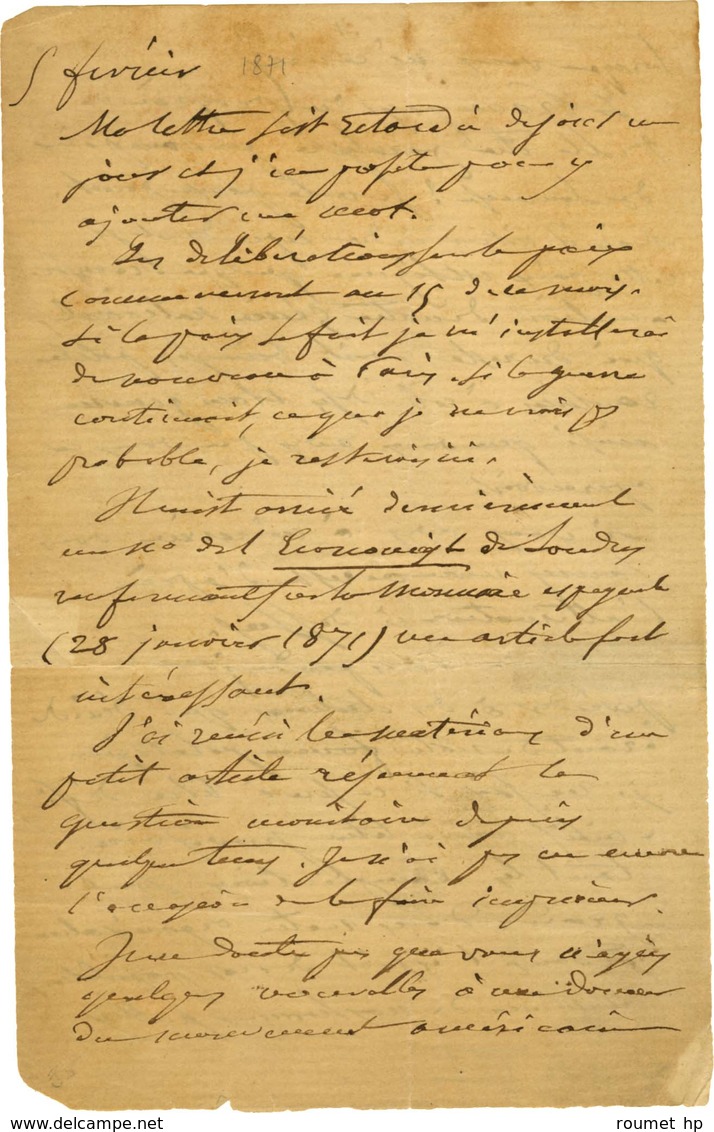 5 février 1871
Ma lettre s'est retardée de jour en
jour et j'en profite pour y
ajouter un mot.
Les délibérations sur la paix
commenceront au 15 de ce mois.
Si la paix se fait je m'installerai
de nouveau à Paris. Si la guerre
continuait, ce que je ne crois pas
probable, je resterais ici.
Il m'est arrivé dernièrement
un no de l'Economist de Londres
renfermant sur la Monnaie espagnole
(28 janvier 1871) un article fort
intéressant.
J'ai réuni les matériaux d'un
petit article résumant la
question monétaire depuis
quelque temps. Je n'ai pas eu encore
l'occasion de le faire imprimer.
Je ne doute pas que vous n'ayez
quelques nouvelles à me donner
du mouvement américain
roumet hp